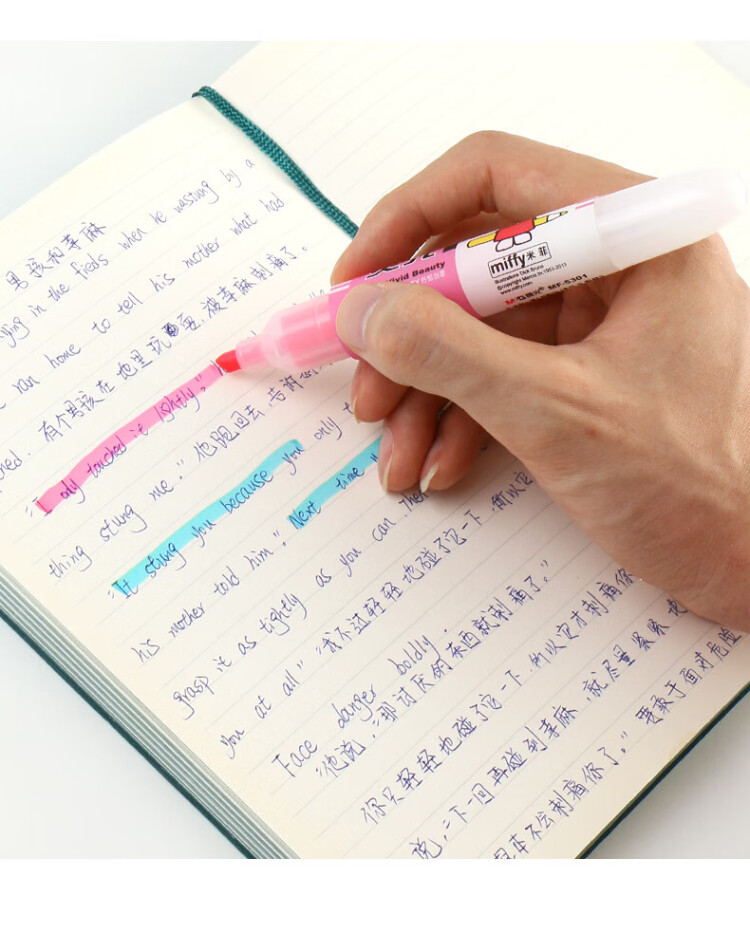 男孩和荨麻
ying in the fields when he was stung by a
ran home to tell his mother what had
ned. 有个男孩在地里玩耍,被荨麻刺痛了。
"I only touched it lightly,"
thing stung me." 他跑回去,告诉
"It stung you because you only t
his mother told him. "Next time
grasp it as tightly as you can. then
you at all." "我不过轻轻地碰了它一下,所以它
Face danger boldly.
"他说,"那讨厌的东西就刺痛了。"
你只轻轻地碰了它一下,所以它才刺痛你
说,"下一回再碰到荨麻,就尽量紧紧
不会刺痛你了。"要敢于面对危险
Vivid Beauty
miffy米菲
Illustrations Dick Bruna
©copyright Mercis bv,1953-2013
www.miffy.com
M&G晨光 MF-5301